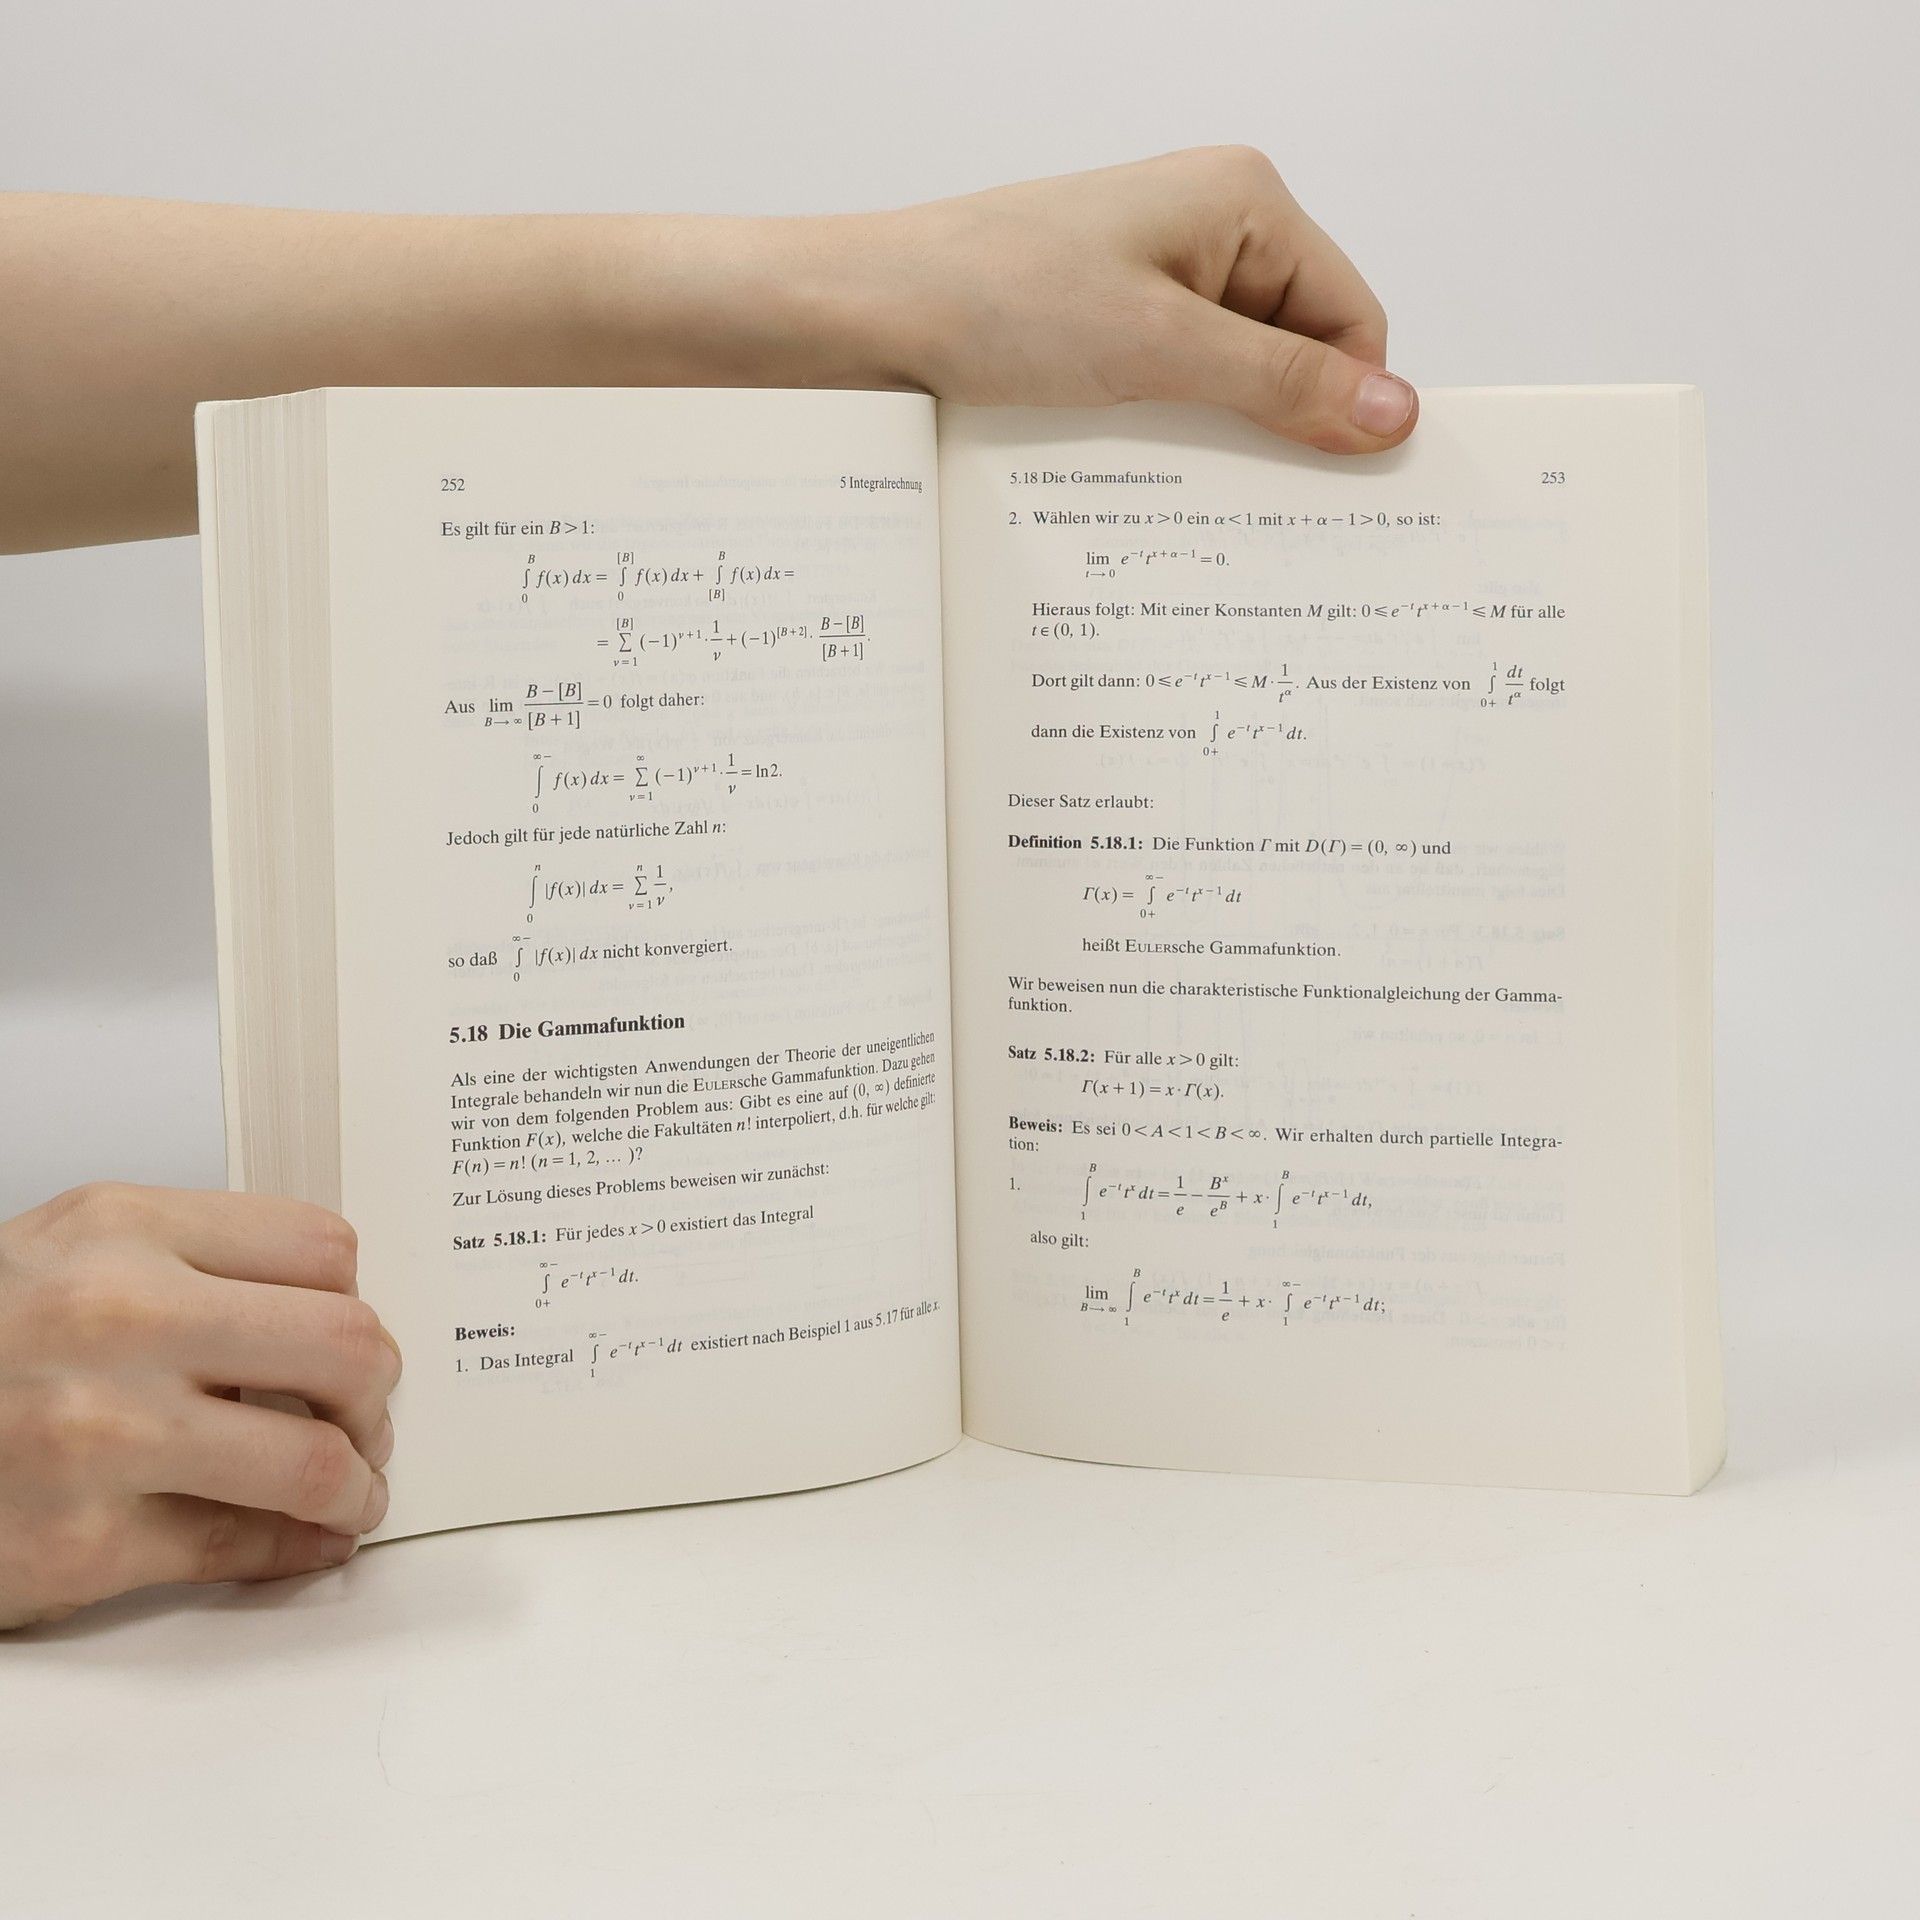 252 5 Integralrechnung
Es gilt für ein B > 1:
∫_0^B f(x) dx = ∫_0^[B] f(x) dx + ∫_[B]^B f(x) dx =
= ∑_{ν=1}^{[B]} (−1)^{ν+1} · 1/ν + (−1)^{[B+2]} · (B−[B])/[B+1].
Aus lim_{B→∞} (B−[B])/[B+1] = 0 folgt daher:
∫_0^{∞−} f(x) dx = ∑_{ν=1}^∞ (−1)^{ν+1} · 1/ν = ln2.
Jedoch gilt für jede natürliche Zahl n:
∫_0^n |f(x)| dx = ∑_{ν=1}^n 1/ν,
so daß ∫_0^{∞−} |f(x)| dx nicht konvergiert.
5.18 Die Gammafunktion
Als eine der wichtigsten Anwendungen der Theorie der uneigentlichen
Integrale behandeln wir nun die EULERsche Gammafunktion. Dazu gehen
wir von dem folgenden Problem aus: Gibt es eine auf (0, ∞) definierte
Funktion F(x), welche die Fakultäten n! interpoliert, d.h. für welche gilt:
F(n) = n! (n = 1, 2, ... )?
Zur Lösung dieses Problems beweisen wir zunächst:
Satz 5.18.1: Für jedes x > 0 existiert das Integral
∫_{0+}^{∞−} e^{−t} t^{x−1} dt.
Beweis:
1. Das Integral ∫_1^{∞−} e^{−t} t^{x−1} dt existiert nach Beispiel 1 aus 5.17 für alle x.
5.18 Die Gammafunktion 253
2. Wählen wir zu x > 0 ein α < 1 mit x + α − 1 > 0, so ist:
lim_{t→0} e^{−t} t^{x+α−1} = 0.
Hieraus folgt: Mit einer Konstanten M gilt: 0 ⩽ e^{−t} t^{x+α−1} ⩽ M für alle
t ∈ (0, 1).
Dort gilt dann: 0 ⩽ e^{−t} t^{x−1} ⩽ M · 1/t^α. Aus der Existenz von ∫_{0+}^1 dt/t^α folgt
dann die Existenz von ∫_{0+}^1 e^{−t} t^{x−1} dt.
Dieser Satz erlaubt:
Definition 5.18.1: Die Funktion Γ mit D(Γ) = (0, ∞) und
Γ(x) = ∫_{0+}^{∞−} e^{−t} t^{x−1} dt
heißt EULERsche Gammafunktion.
Wir beweisen nun die charakteristische Funktionalgleichung der Gamma-
funktion.
Satz 5.18.2: Für alle x > 0 gilt:
Γ(x + 1) = x · Γ(x).
Beweis: Es sei 0 < A < 1 < B < ∞. Wir erhalten durch partielle Integra-
tion:
1. ∫_1^B e^{−t} t^x dt = 1/e − B^x/e^B + x · ∫_1^B e^{−t} t^{x−1} dt,
also gilt:
lim_{B→∞} ∫_1^B e^{−t} t^x dt = 1/e + x · ∫_1^{∞−} e^{−t} t^{x−1} dt;